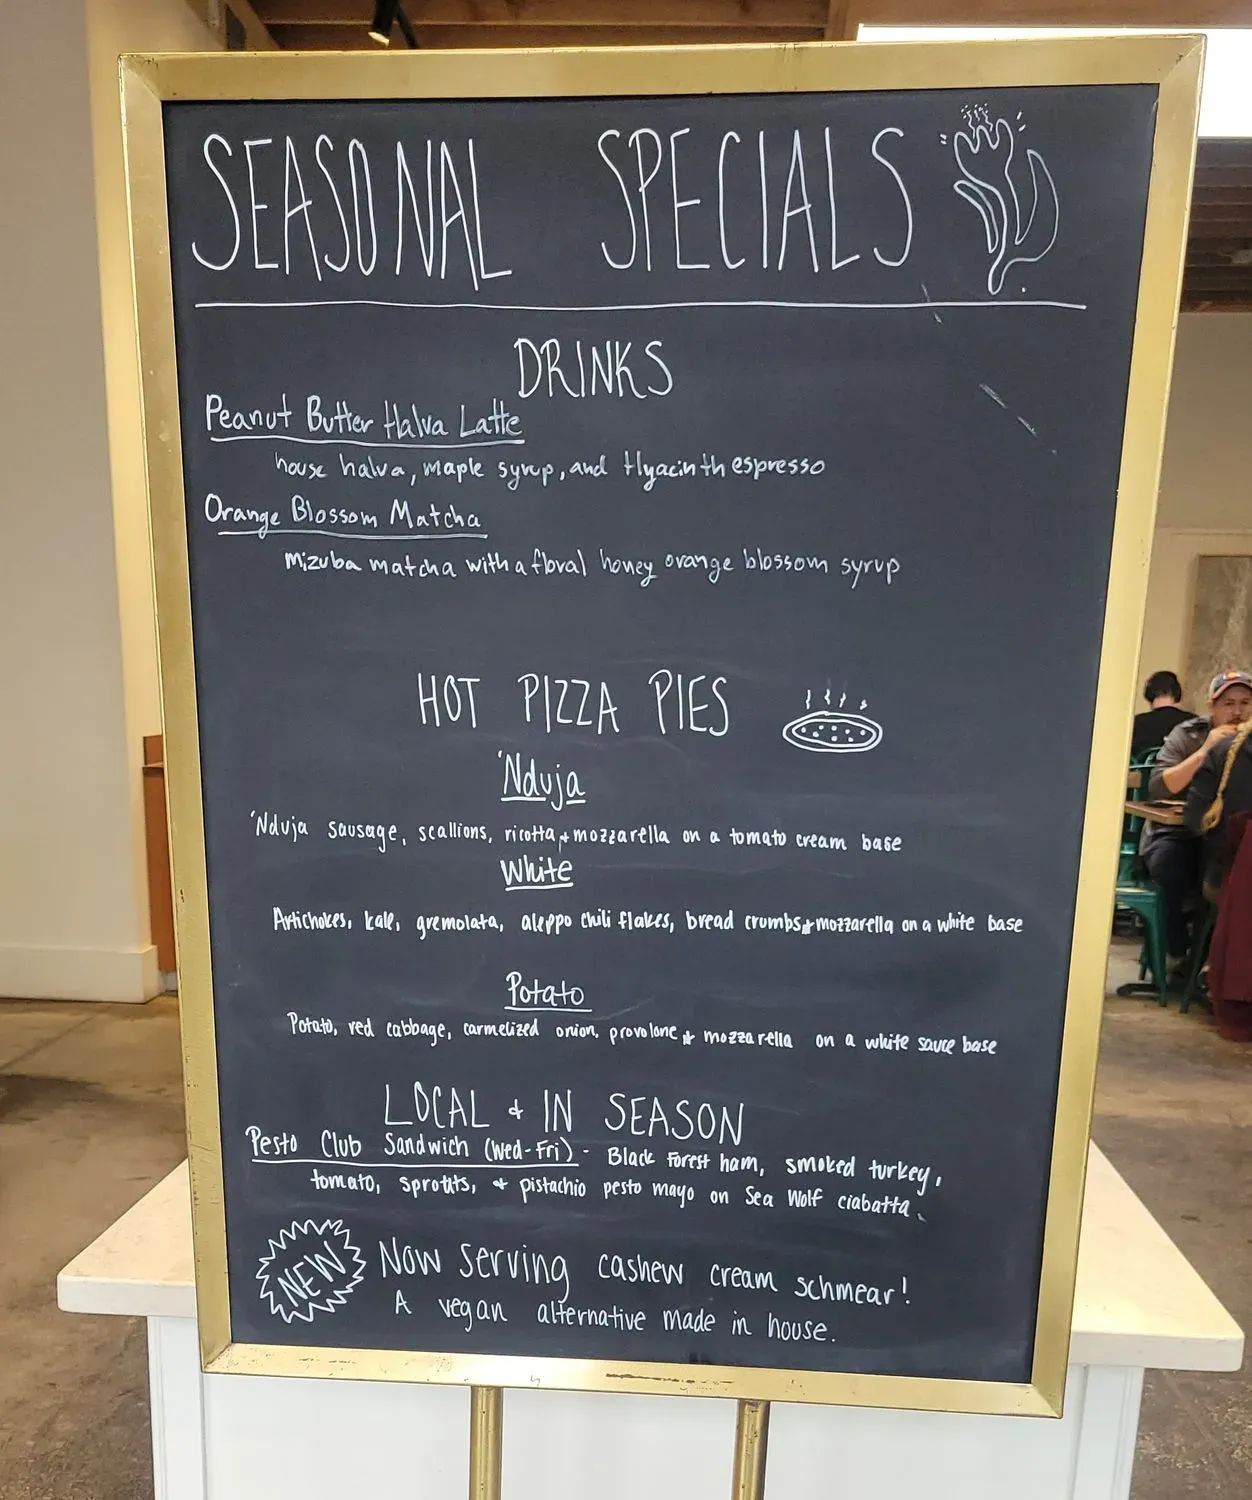 SEASONAL SPECIALS
DRINKS
Peanut Butter Halva Latte
house halva, maple syrup, and Hyacinth espresso
Orange Blossom Matcha
Mizuba matcha with a floral honey orange blossom syrup
HOT PIZZA PIES
'Nduja
'Nduja sausage, scallions, ricotta + mozzarella on a tomato cream base
White
Artichokes, kale, gremolata, aleppo chili flakes, bread crumbs + mozzarella on a white base
Potato
Potato, red cabbage, carmelized onion, provolone + mozzarella on a white sauce base
LOCAL + IN SEASON
Pesto Club Sandwich (Wed-Fri) - Black Forest ham, smoked turkey,
tomato, sprouts, + pistachio pesto mayo on Sea Wolf ciabatta.
NEW Now serving cashew cream schmear!
A vegan alternative made in house.